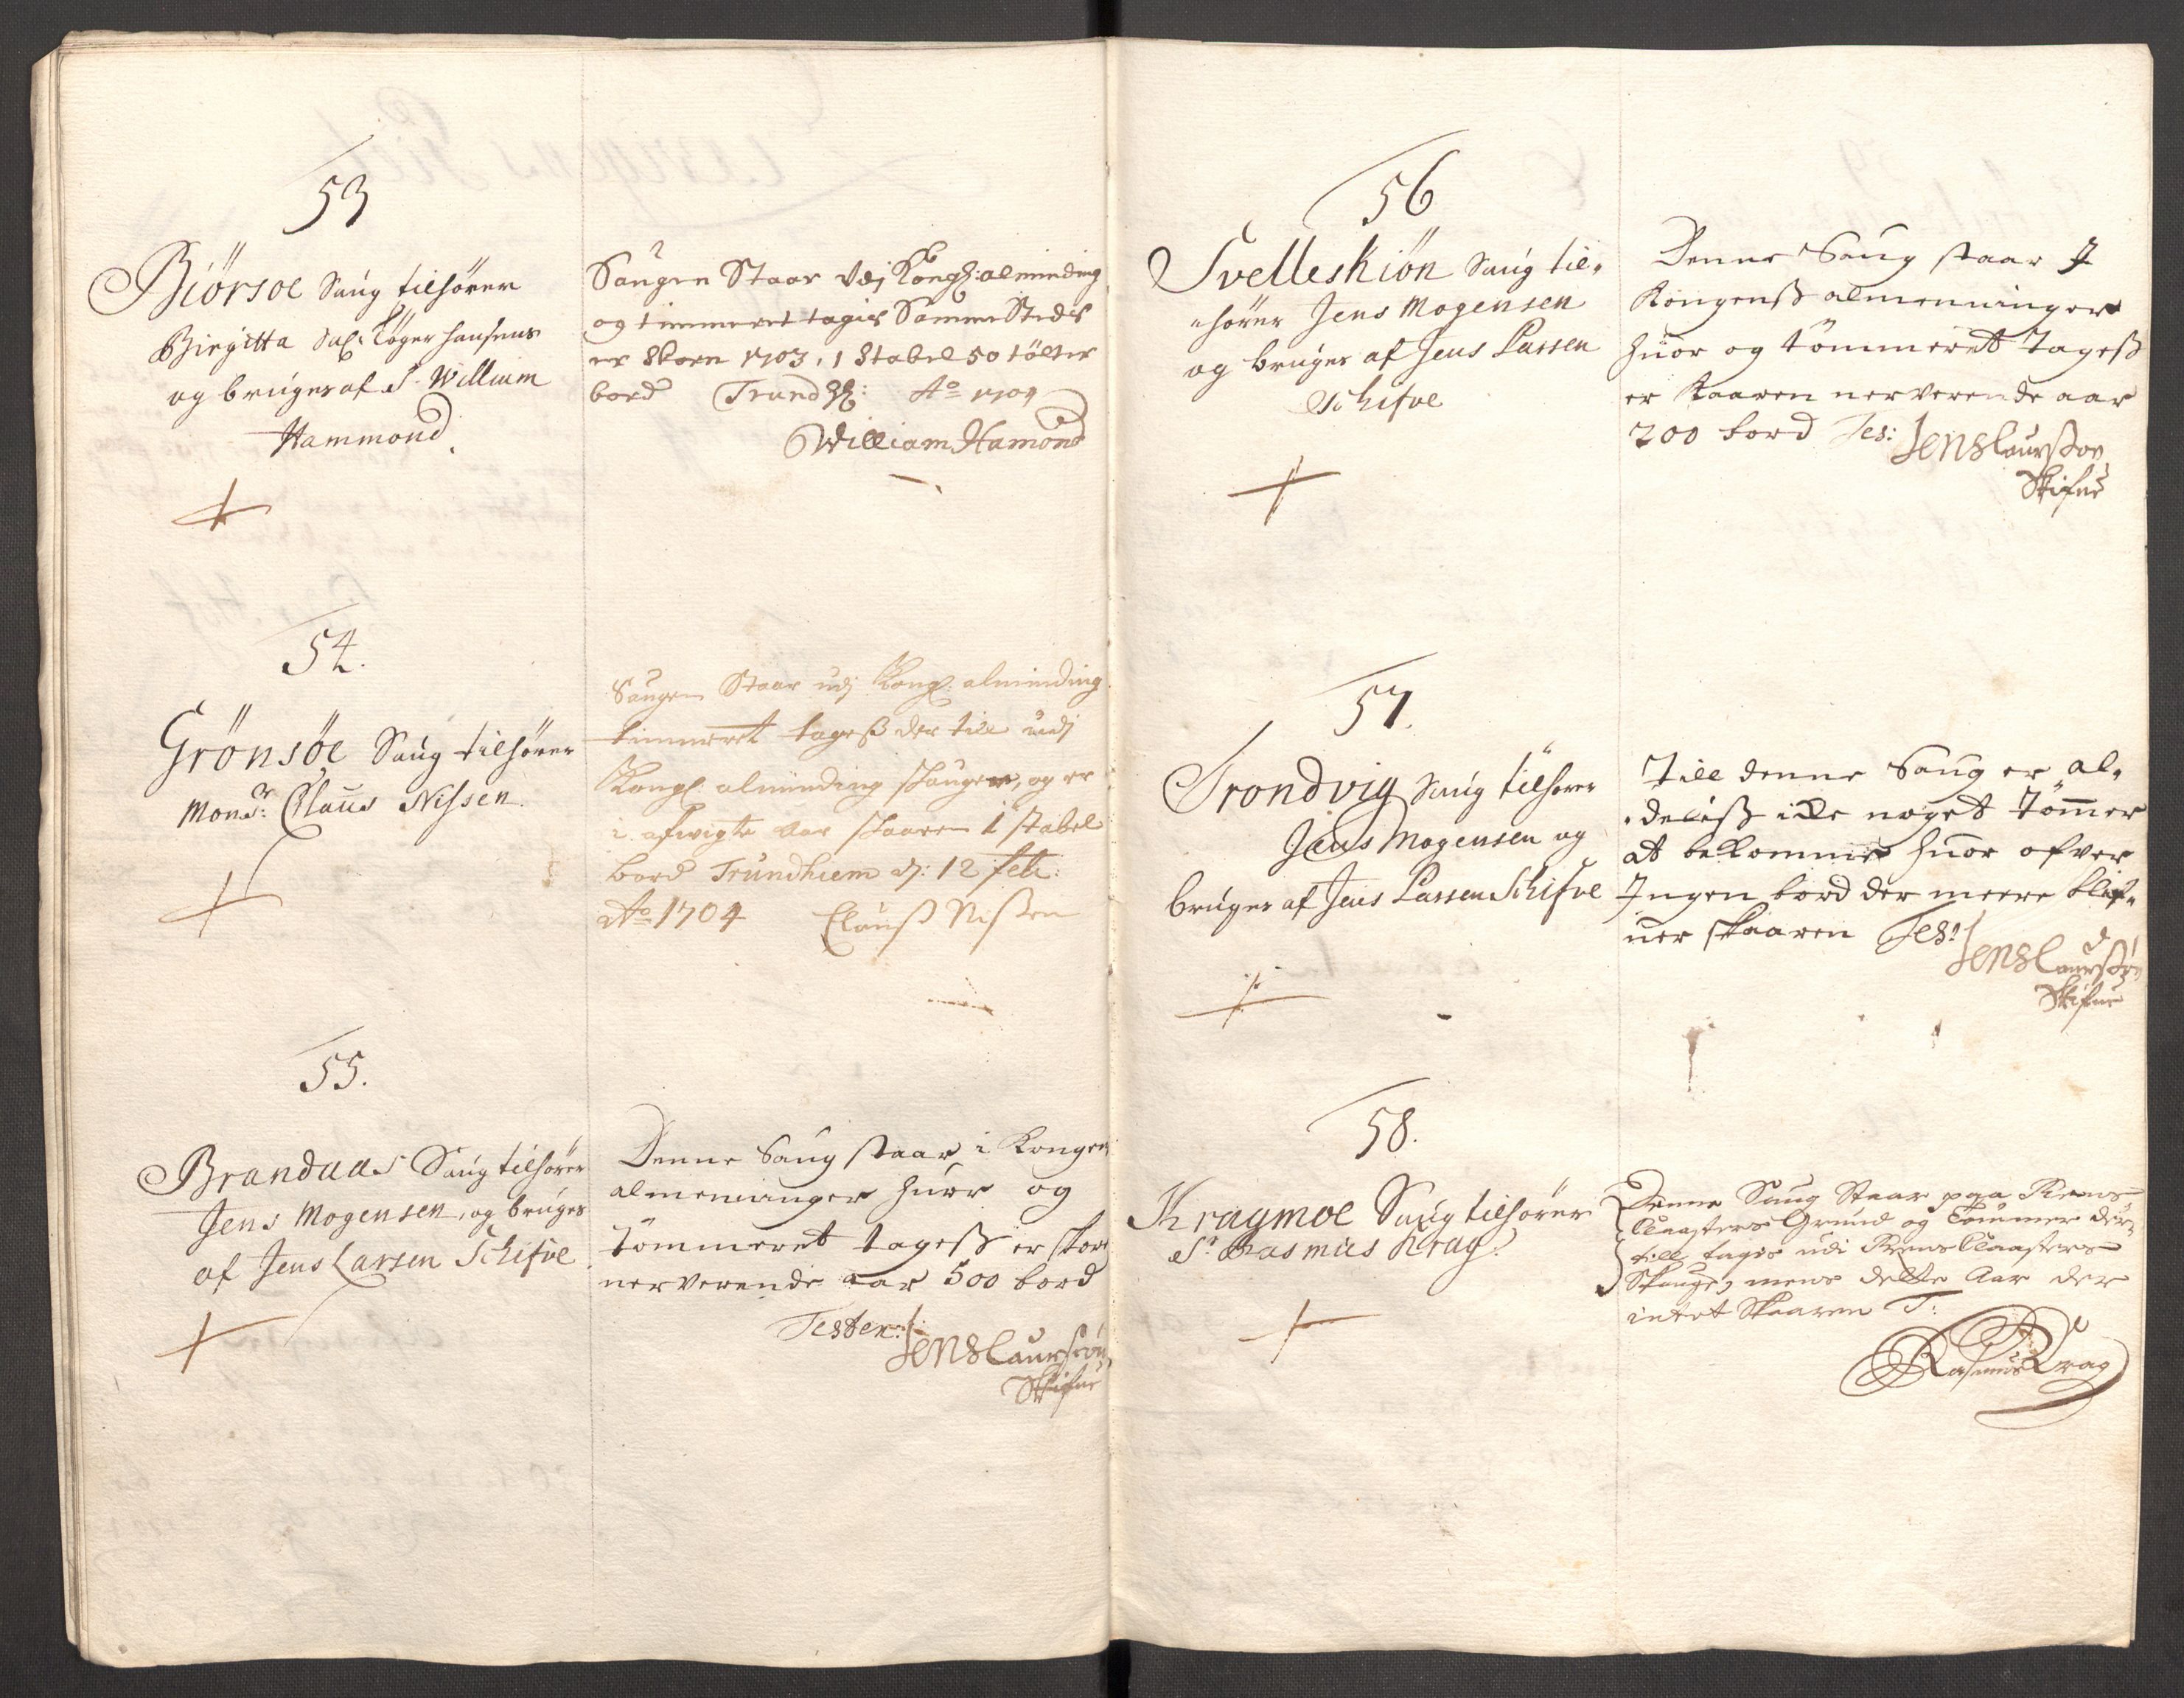 53
Biörsoe Saug tilhörer
Birgitta Sal: Töger Hansens
og bruges af S. William
Hammond.
Saugen Staar Udj Kongl: alminding
og timmeret tagis Samme Steds
er skoren 1703, 1 Stabel 50 tölter
bord Trundhl: Ao 1704
William Hamond
54.
Grönsöe Saug tilhörer
Monsr: Claus Nissen.
Saugen Staar udj Kongl: alminding
timmeret tageß der till udj
Kongl: alminding skaugen, og er
i afwigte aar skaaren 1 stabel
bord Trundhiem d: 12 feb:
Ao 1704 Clauß Nißen
55.
Brandaas Saug tilhörer
Jens Mogensen, og bruges
af Jens Larsen Schifve
Denne Saug staar i Kongens
almeninger huor og
Tömmeret tageß er skor
nerverende aar 500 bord
Tester: Jens Laursön
Skifue
56
Svelleskiön Saug til-
-hörer Jens Mogensen
og bruges af Jens Larsen
Schifve
Denne Saug staar J
Kongenß almenninger
huor og tömmeret Tageß
er skaaren nerverende aar
200 bord Tes: Jens Laurßøn
Skifue
57.
Trondvig Saug tilhörer
Jens Mogensen og
bruges af Jens Larsen Schifve
Till denne Saug er al-
-deliß icke noget Tömmer
at bekomme huor ofver
Jngen bord der meere blif-
uer skaaren Test
Jens Laurßøn
Skifue
58.
Kragmoe Saug tilhörer
Sr Rasmus Krag.
Denne Saug Staar paa Reens
Claasters Grund og Tömmer der-
till tages udi Reens Claasters
Skauge, mens dette Aar der
intet Skaaren T:
Rasmus Krag